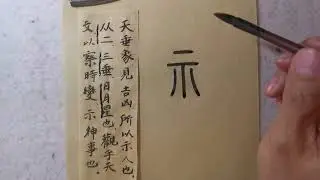 天垂象見吉凶所以示人也
从二三垂日月星也觀乎天
文以察時變示神事也
示